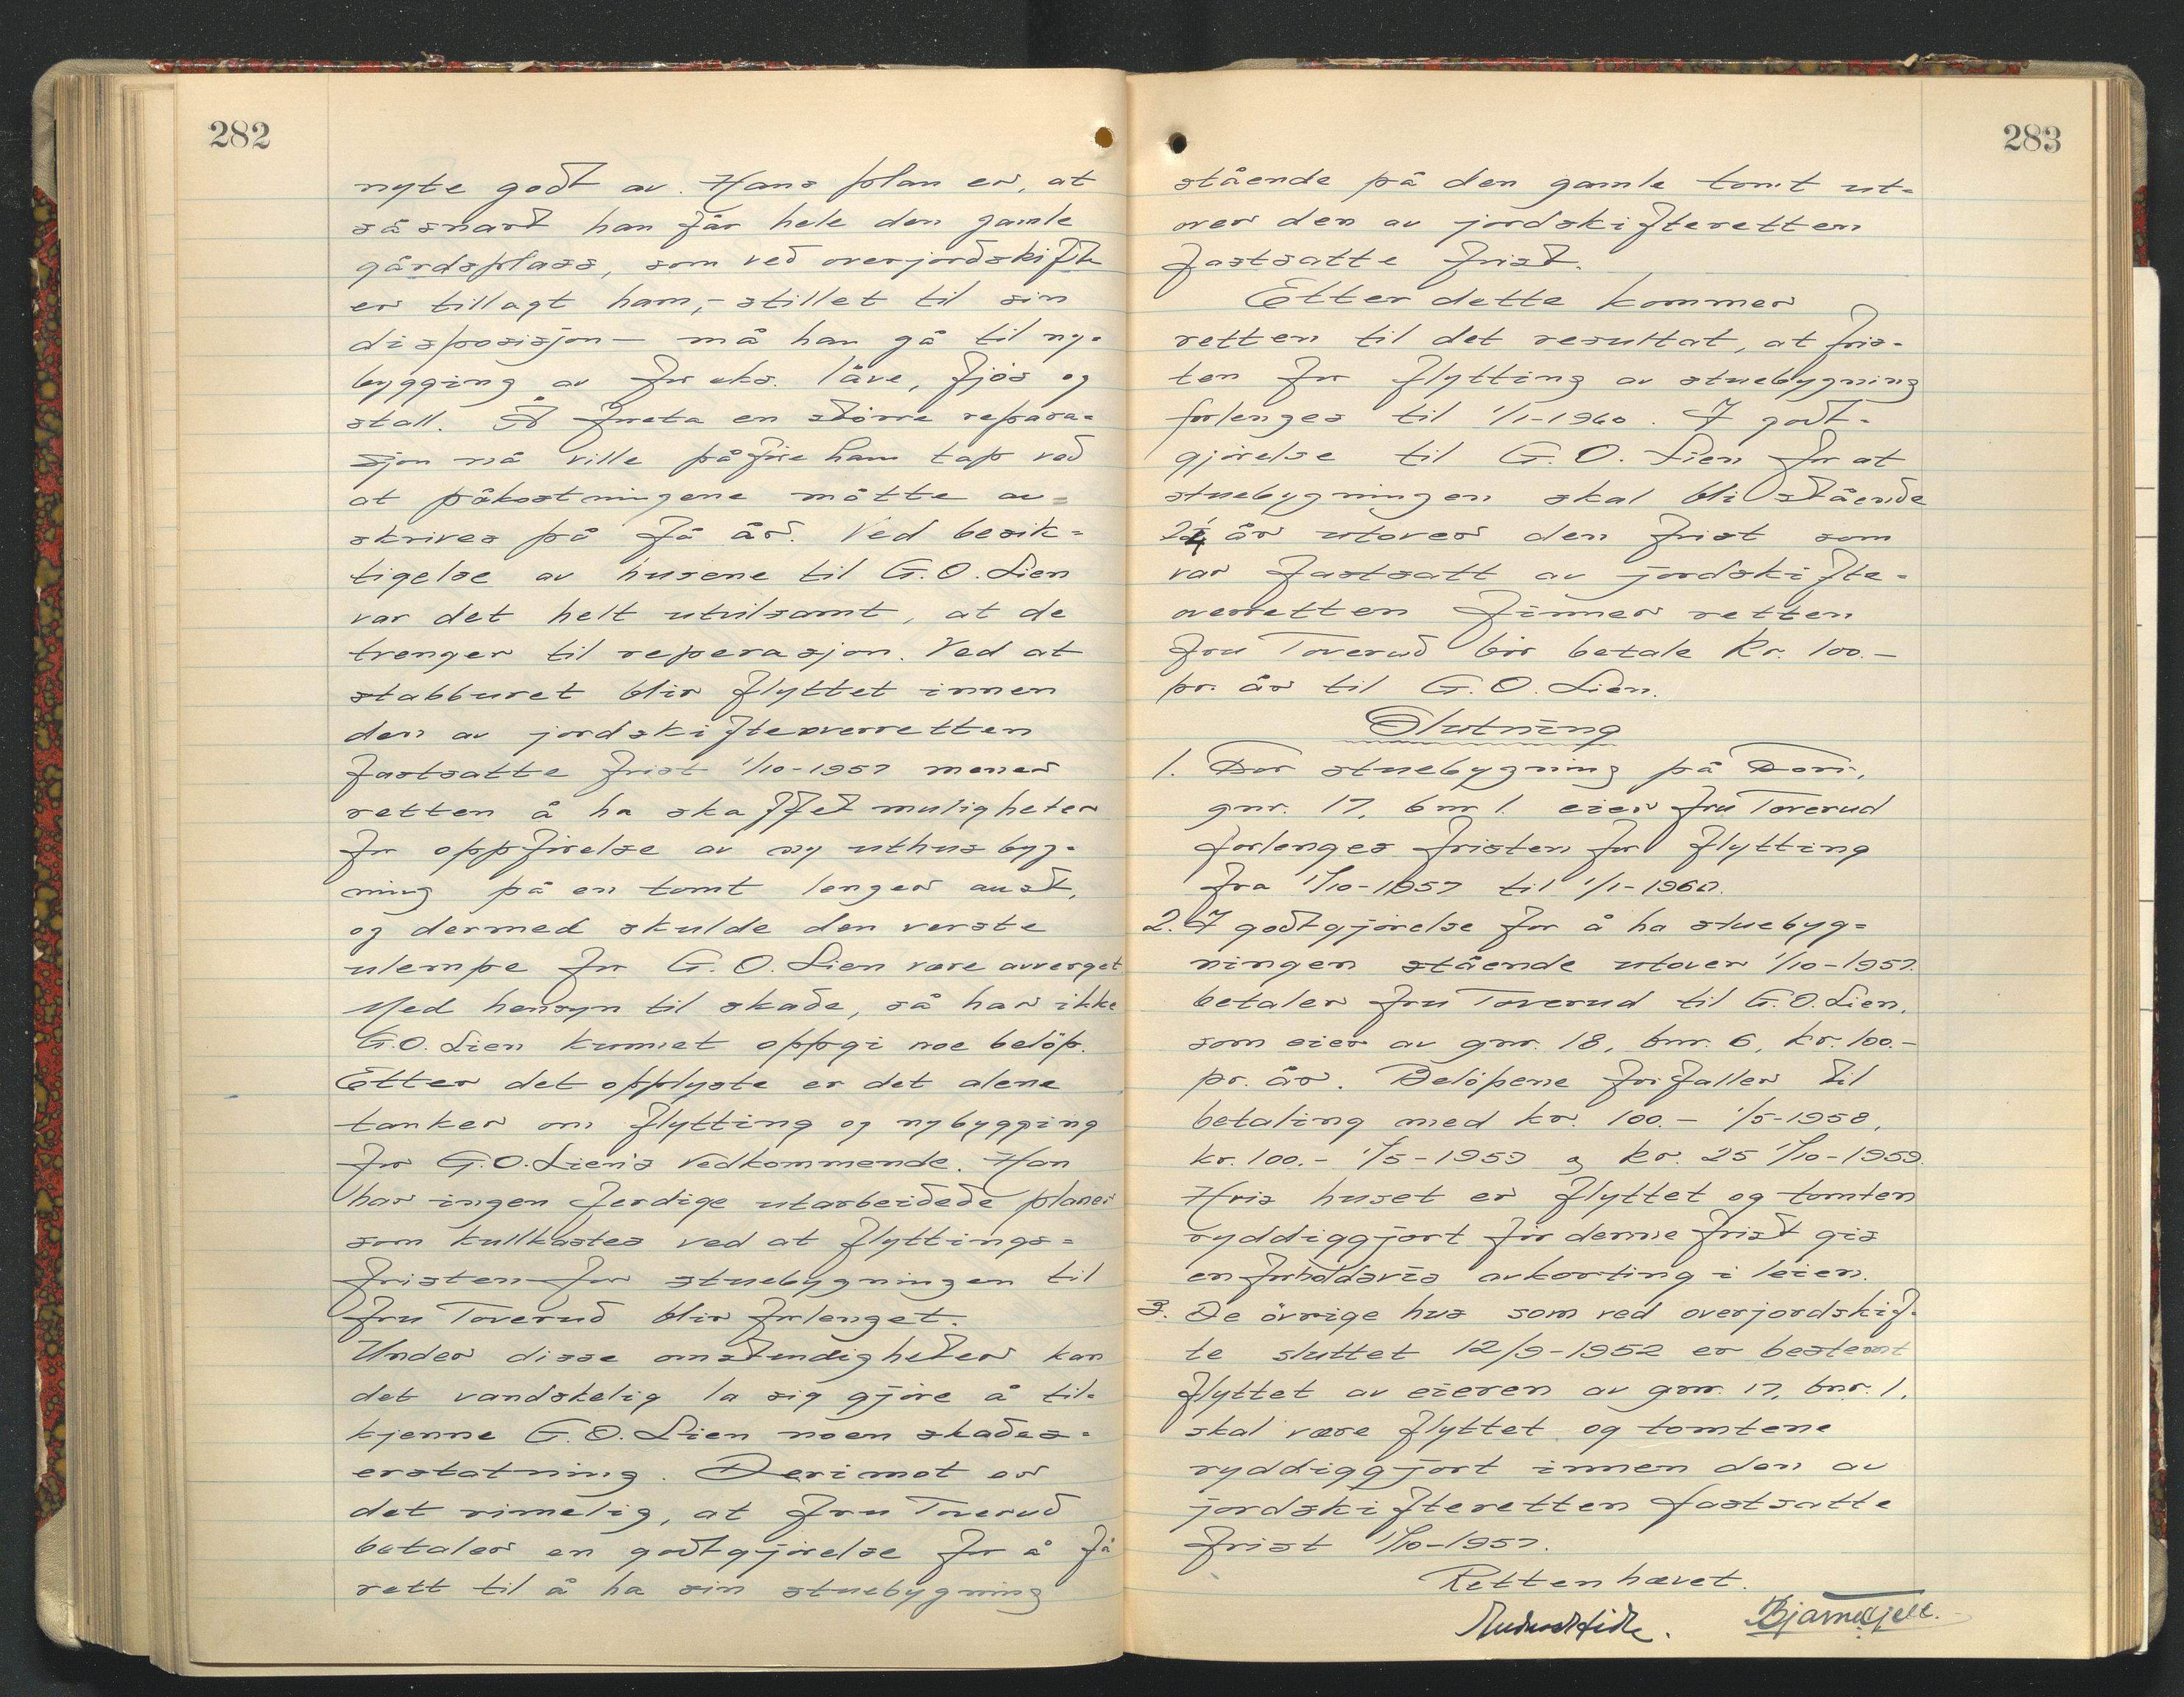 282
nyte godt av. Hans plan er, at
så snart han får hele den gamle
gårdsplass, som ved overjordskifte
er tillagt ham,- stillet til sin
disposisjon - må han gå til ny-
bygging av for eks. låve, fjös og
stall. Å foreta en större repara-
sjon nå ville påföre ham tap ved
at påkostningene måtte av-
skrives på få år. Ved besik-
tigelse av husene til G.O. Lien
var det helt utvilsomt, at de
trenger til reperasjon. Ved at
stabburet blir flyttet innen
den av jordskifteoverretten
fastsatte frist 1/10-1957 mener
retten å ha skaffet muligheter
for oppförelse av ny uthusbyg-
ning på en tomt lenger aust,
og dermed skulde den verste
ulempe for G.O. Lien være avverget
Med hensyn til skade, så har ikke
G.O. Lien kunnet oppgi noe belöp.
Etter det opplyste er det alene
tanker om flytting og nybygging
for G.O. Lien's vedkommende. Han
har ingen ferdige utarbeidede planer
som kullkastes ved at flyttings-
fristen for stuebygningen til
fru Toverud blir forlenget.
Under disse omstendigheter kan
det vandskelig la sig gjöre å til-
kjenne G.O. Lien noen skades-
erstatning. Derimot er
det rimelig, at fru Toverud
betaler en godtgjörelse for å få
rett til å ha sin stuebygning
283
stående på den gamle tomt ut-
over den av jordskifteretten
fastsatte frist.
Etter dette kommer
retten til det resultat, at fris-
ten for flytting av stuebygning
forlenges til 1/1-1960. I godt-
gjörelse til G.O. Lien for at
stuebygningen skal bli stående
2 1/4 år utover den frist som
var fastsatt av jordskifte-
overretten finner retten
fru Toverud bör betale kr. 100.-
pr. år til G.O. Lien.
Slutning
1. For stuebygning på
gnr. 17, bnr 1. eier fru Toverud
forlenges fristen for flytting
fra 1/10-1957 til 1/1-1960.
2. I godtgjörelse for å ha stuebyg-
ningen stående utover 1/10-1957.
betaler fru Toverud til G.O. Lien,
som eier av gnr. 18, bnr. 6, kr. 100.-
pr. år. Belöpene forfaller til
betaling med kr. 100.- 1/5-1958,
kr. 100.- 1/5-1959 og kr. 25 1/10-1959.
Hvis huset er flyttet og tomten
ryddiggjort för denne frist gis
en forholdsvis avkorting i leien.
3. De övrige hus som ved overjordskif-
te sluttet 12/9-1952 er bestemt
flyttet av eieren av gnr. 17, bnr. 1,
skal være flyttet og tomtene
ryddiggjort innen den av
jordskifteretten fastsatte
frist 1/10-1957.
Retten hævet.